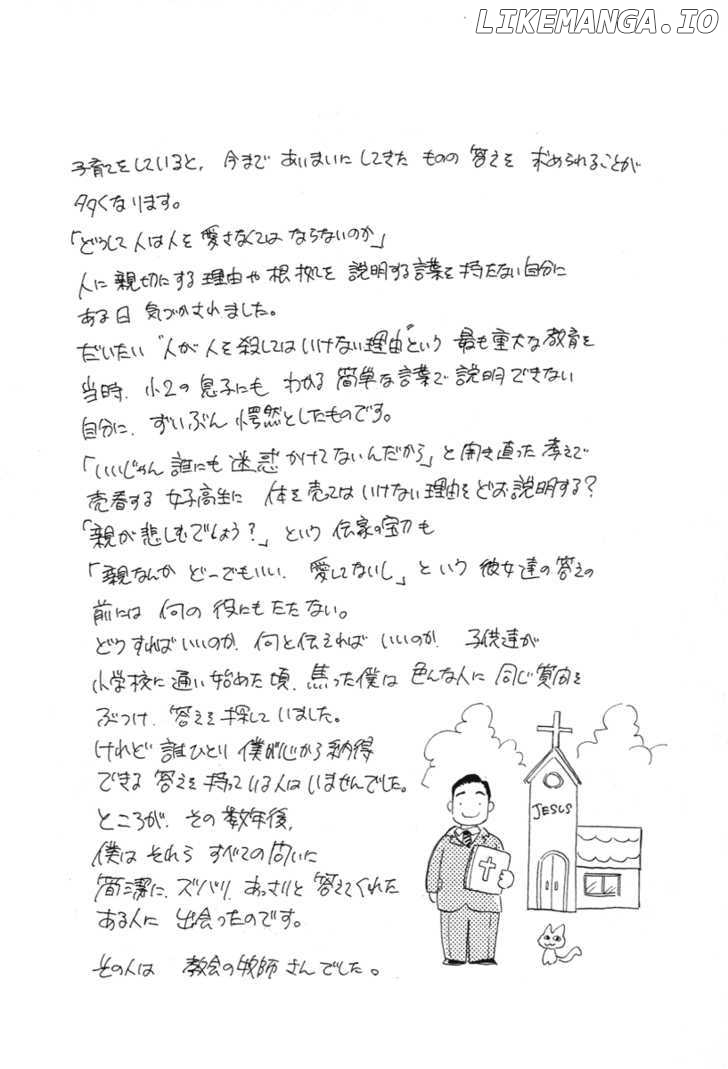 LIKEMANGA.IO
子育てをしていると、今まで あいまいに してきた ものの 答えを 求められることが
多くなります。
「どうして人は人を 愛さなくては ならないのか」
人に 親切にする 理由や 根拠を 説明する言葉を 持たない自分に
ある日 気づかされました。
だいたい “人が人を殺してはいけない理由”という 最も重大な教育を
当時、小2の息子にも わかる 簡単な言葉で 説明できない
自分に、ずいぶん 愕然としたものです。
「いいじゃん 誰にも 迷惑 かけてないんだから」と 開き直った 考えで
売春する 女子高生に 体を売ては いけない理由を どお説明する?
「親が悲しむでしょう?」という 伝家の宝刀も
「親なんか どーでもいい、愛してないし」という 彼女達の答えの
前には 何の 役にも たたない。
どうすればいいのか、何と伝えれば いいのか、子供達が
小学校に 通い始めた頃、焦った僕は 色んな人に 同じ質問を
ぶつけ、答えを 探して いました。
けれど 誰ひとり 僕が心から納得
できる 答えを 持っている人は いませんでした。
ところが、その 数年後、
僕は それら すべての 問いに
簡潔に、ズバリ、あっさりと 答えてくれた
ある人に 出会ったのです。
その人は 教会の牧師さんでした。
JESUS